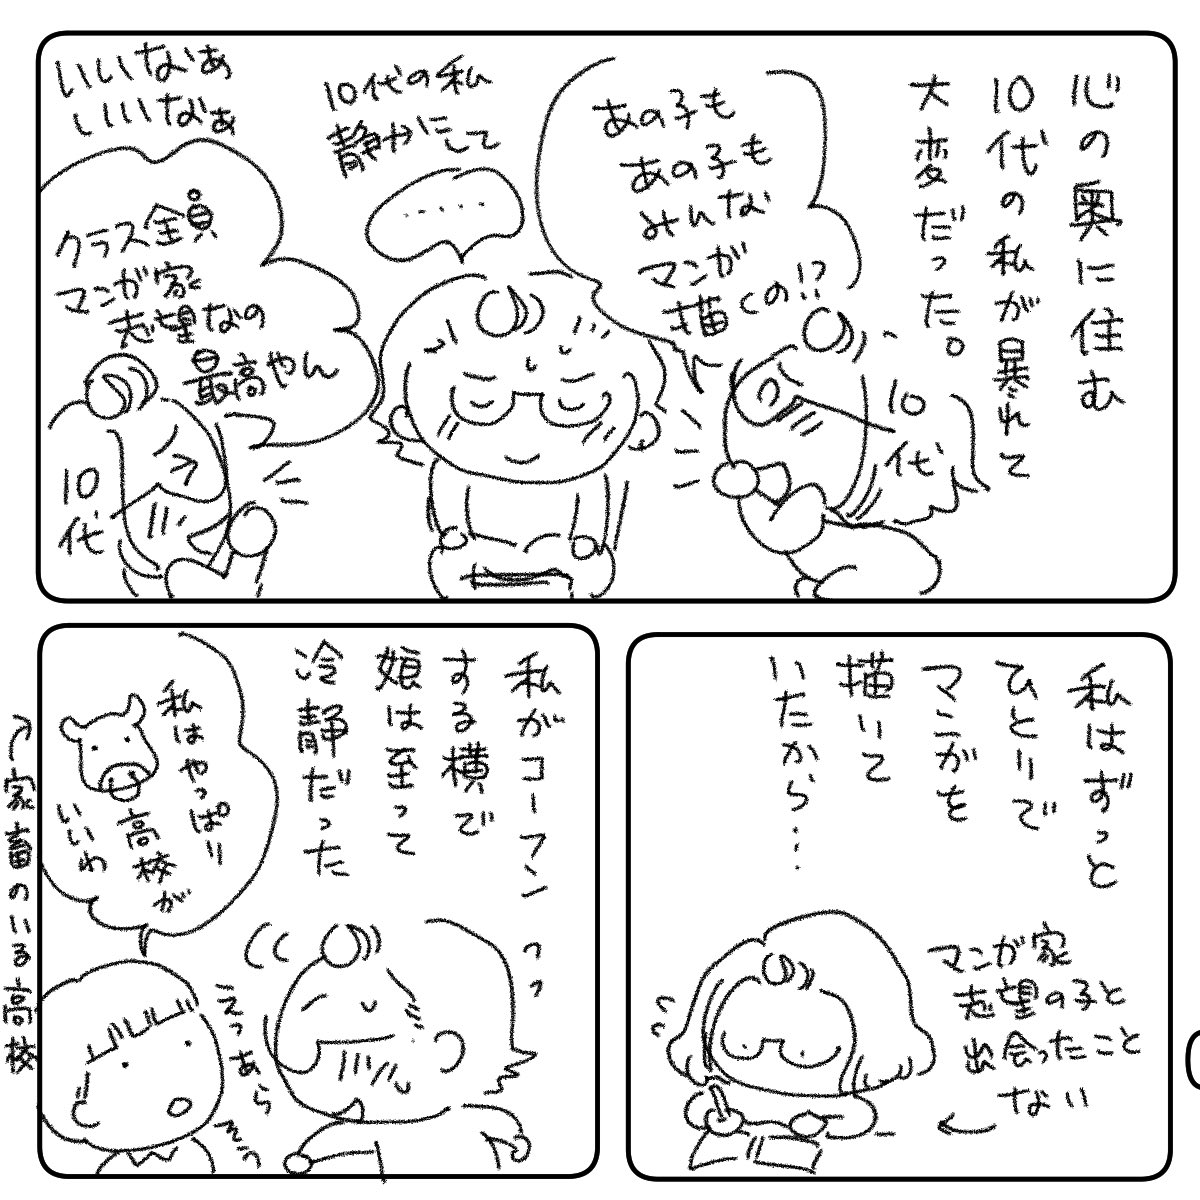 心の奥に住む
10代の私が暴れて
大変だった。
あの子も
あの子も
みんな
マンガ
描くの!?
10代
10代の私
静かにして
・・・・・
いいなぁ
いいなぁ
クラス全員
マンガ家
志望なの
最高やん
10代
私はずっと
ひとりで
マンガを
描いて
いたから・・・
マンガ家
志望の子と
出会ったこと
ない
私がコーフン
する横で
娘は至って
冷静だった
私はやっぱり
高校が
いいわ
えっあら
そう
→家畜のいる高校